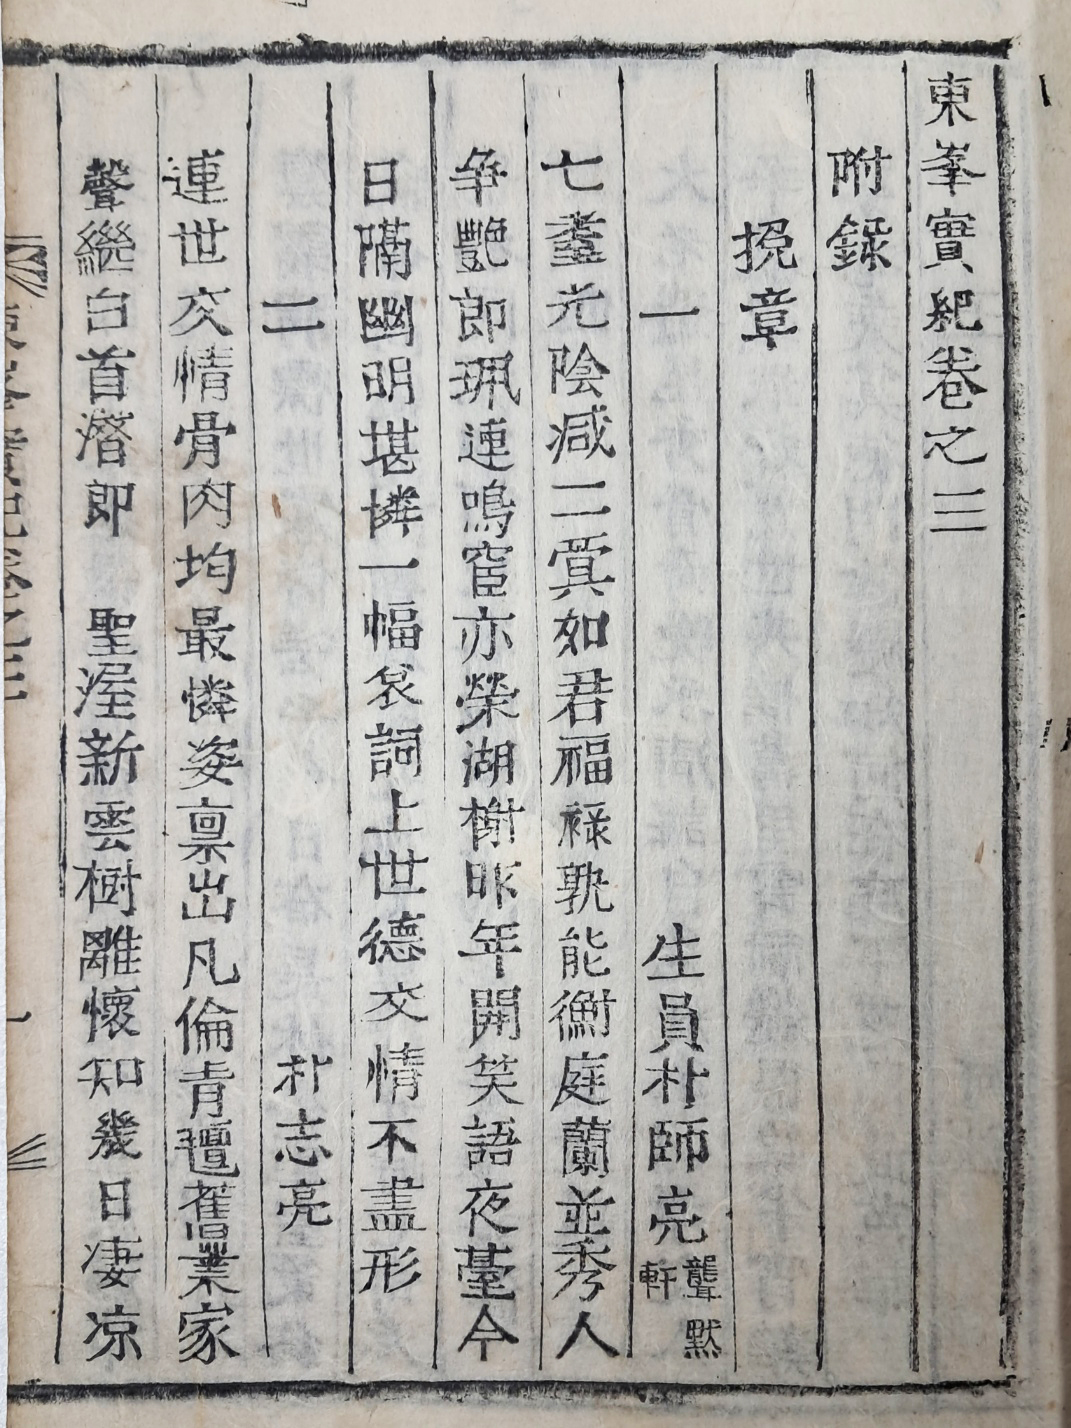 東峯實紀卷之三
附錄
挽章
一 生員朴師亮聾默軒
七耋光陰减二蓂如君福祿孰能衡庭蘭並秀人
争艶郎珮連鳴宦亦榮湖榭昨年開笑語夜臺今
日隔幽明堪憐一幅哀詞上世德交情不盡形
二 朴志亮
連世交情骨肉均最憐姿禀出凡倫靑氊舊業家
聲繼白首潛郎 聖渥新雲樹離懷知幾日凄凉